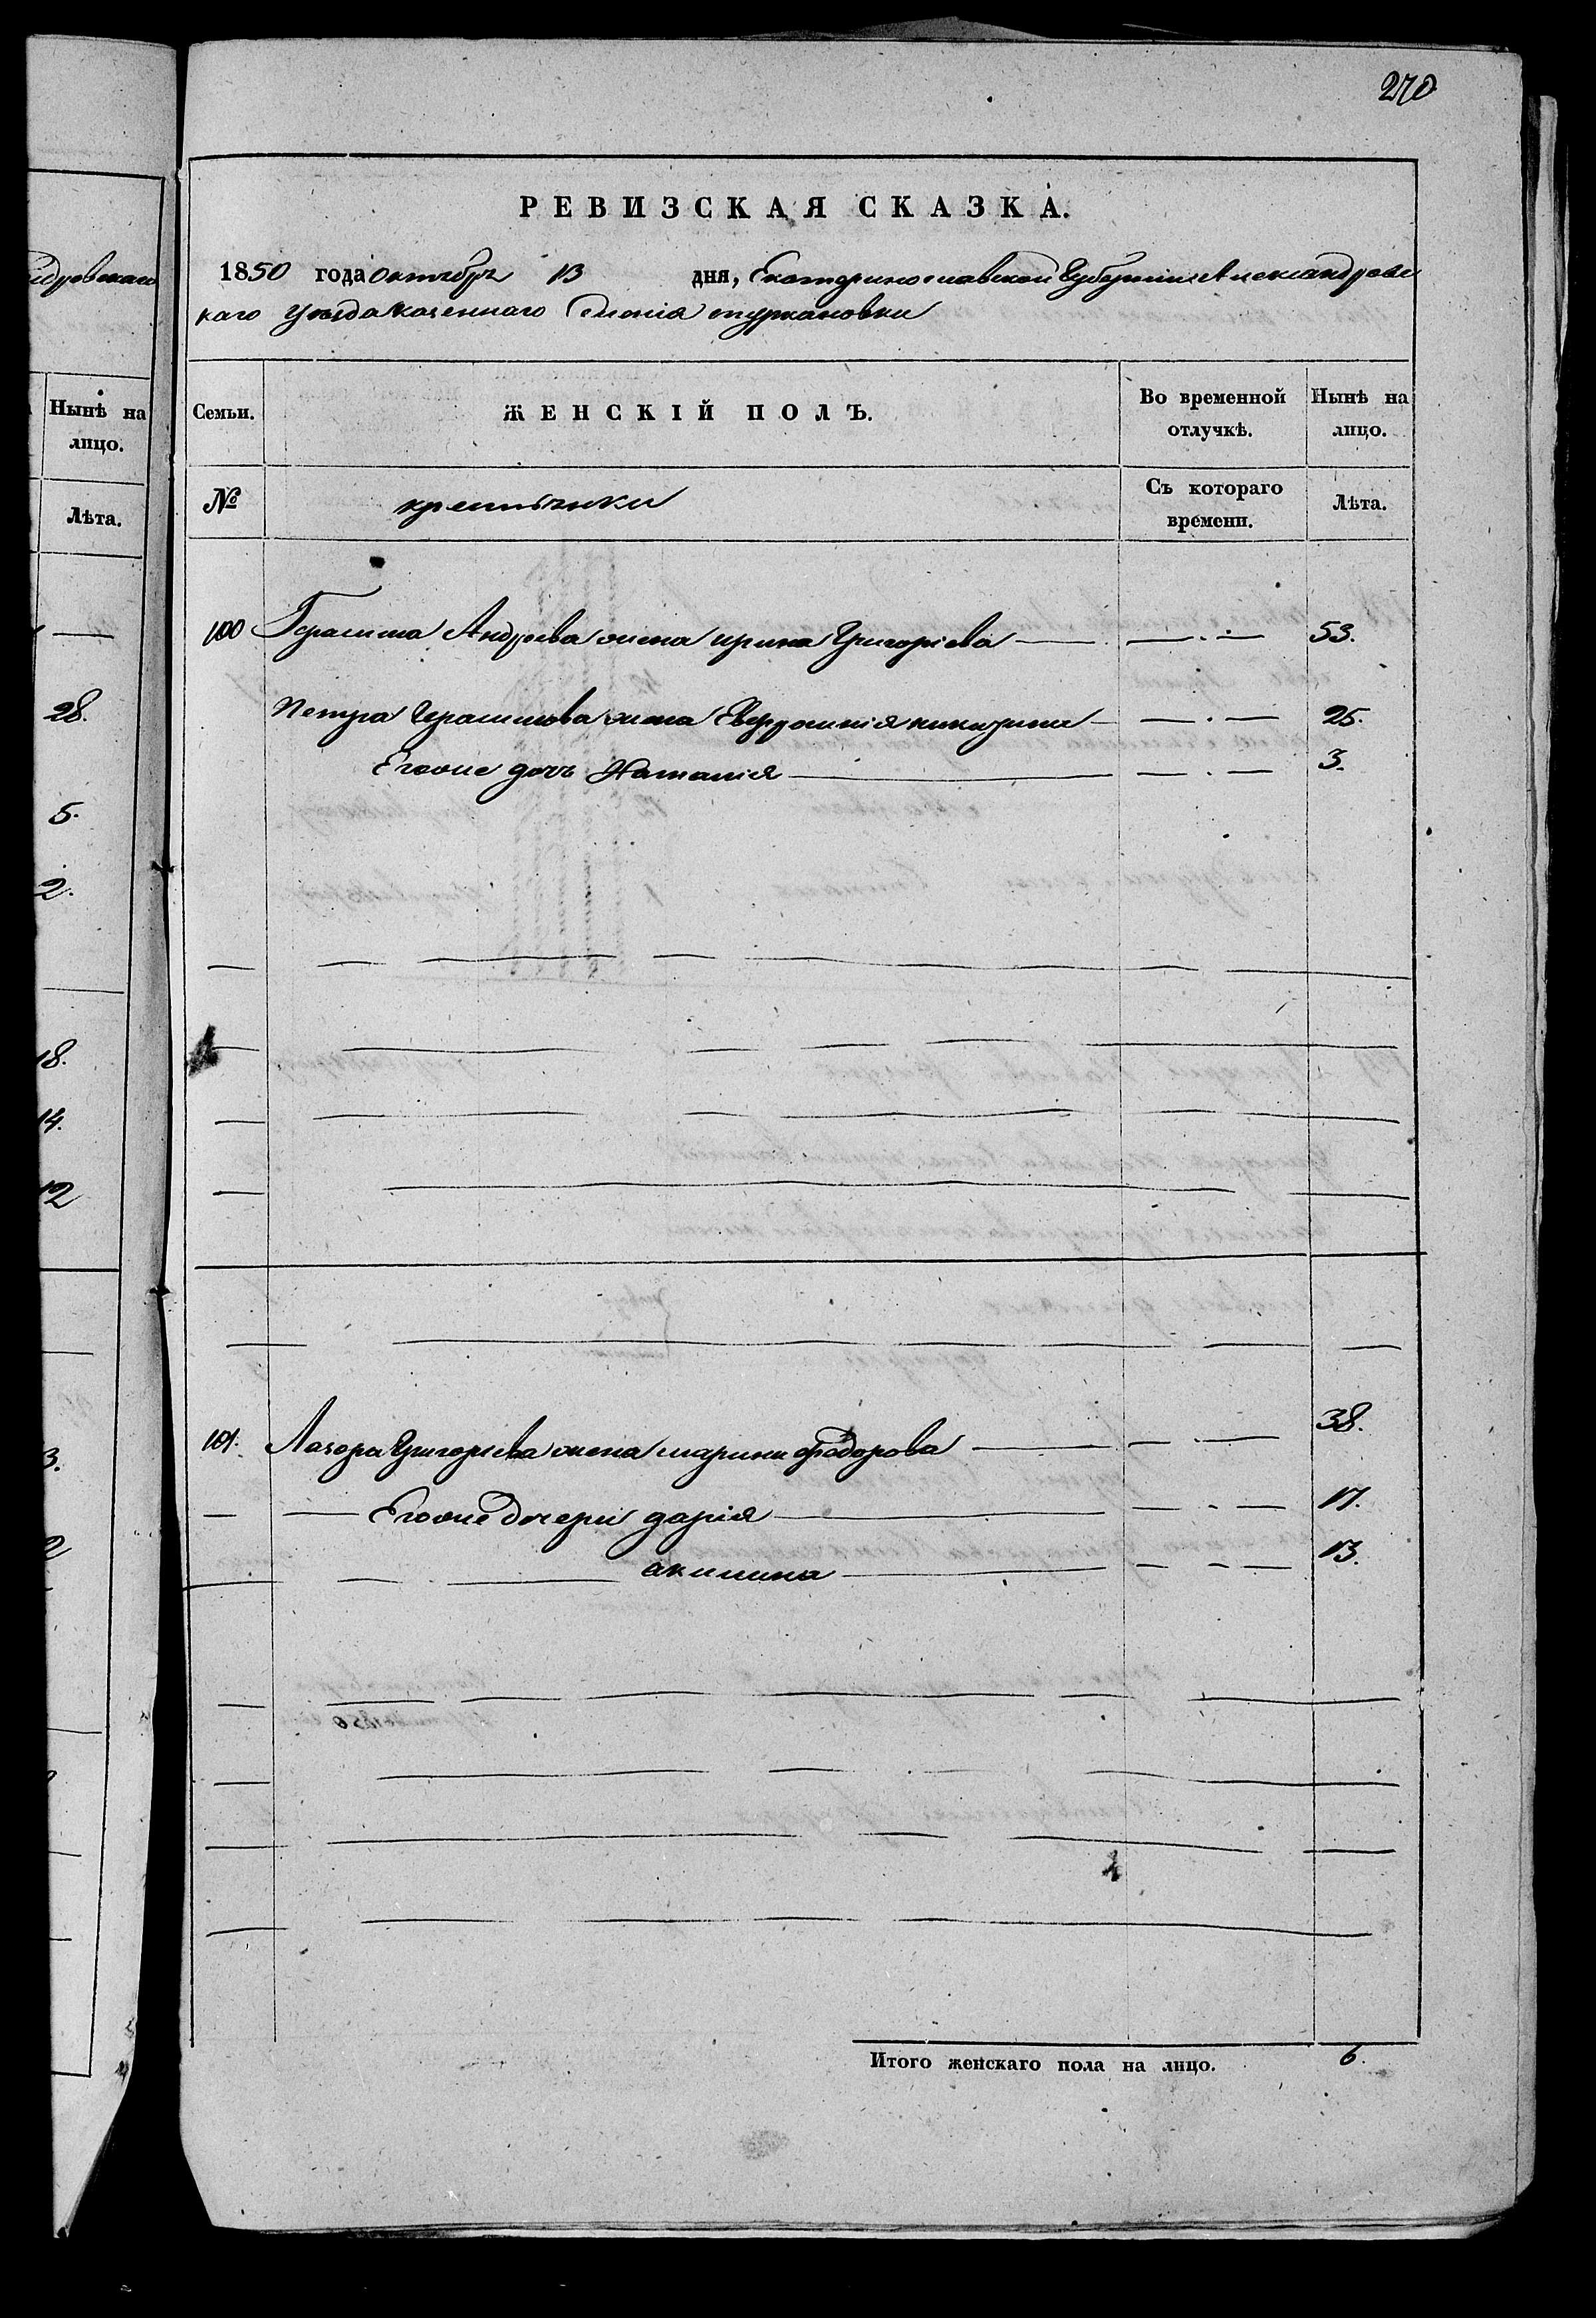 270
идровскаго
РЕВИЗСКАЯ СКАЗКА.
1850 года октября 13 дня, Екатеринославской Губерніи Александровс
каго уезда казенного Селенія туркановки
Нынѣ на
лицо.
Лѣта.
Семьи.
ЖЕНСКІЙ ПОЛЪ.
Во временной
отлучкѣ.
Нынѣ на
лицо.
№
крестьянки
Съ котораго
времени.
Лѣта.
100 Герасима Андреева жена ирина Григоріева 53.
28.
Петра Герасимова жена Евфросинія никитина 25.
Егоже дочь Наталія 3.
5.
2.
18.
14.
12
101. Лазоря Григорьева жена марина федорова 38.
3.
Егоже дочери дарія 17.
2
акилина 13.
Итого женскаго пола на лицо. 6.